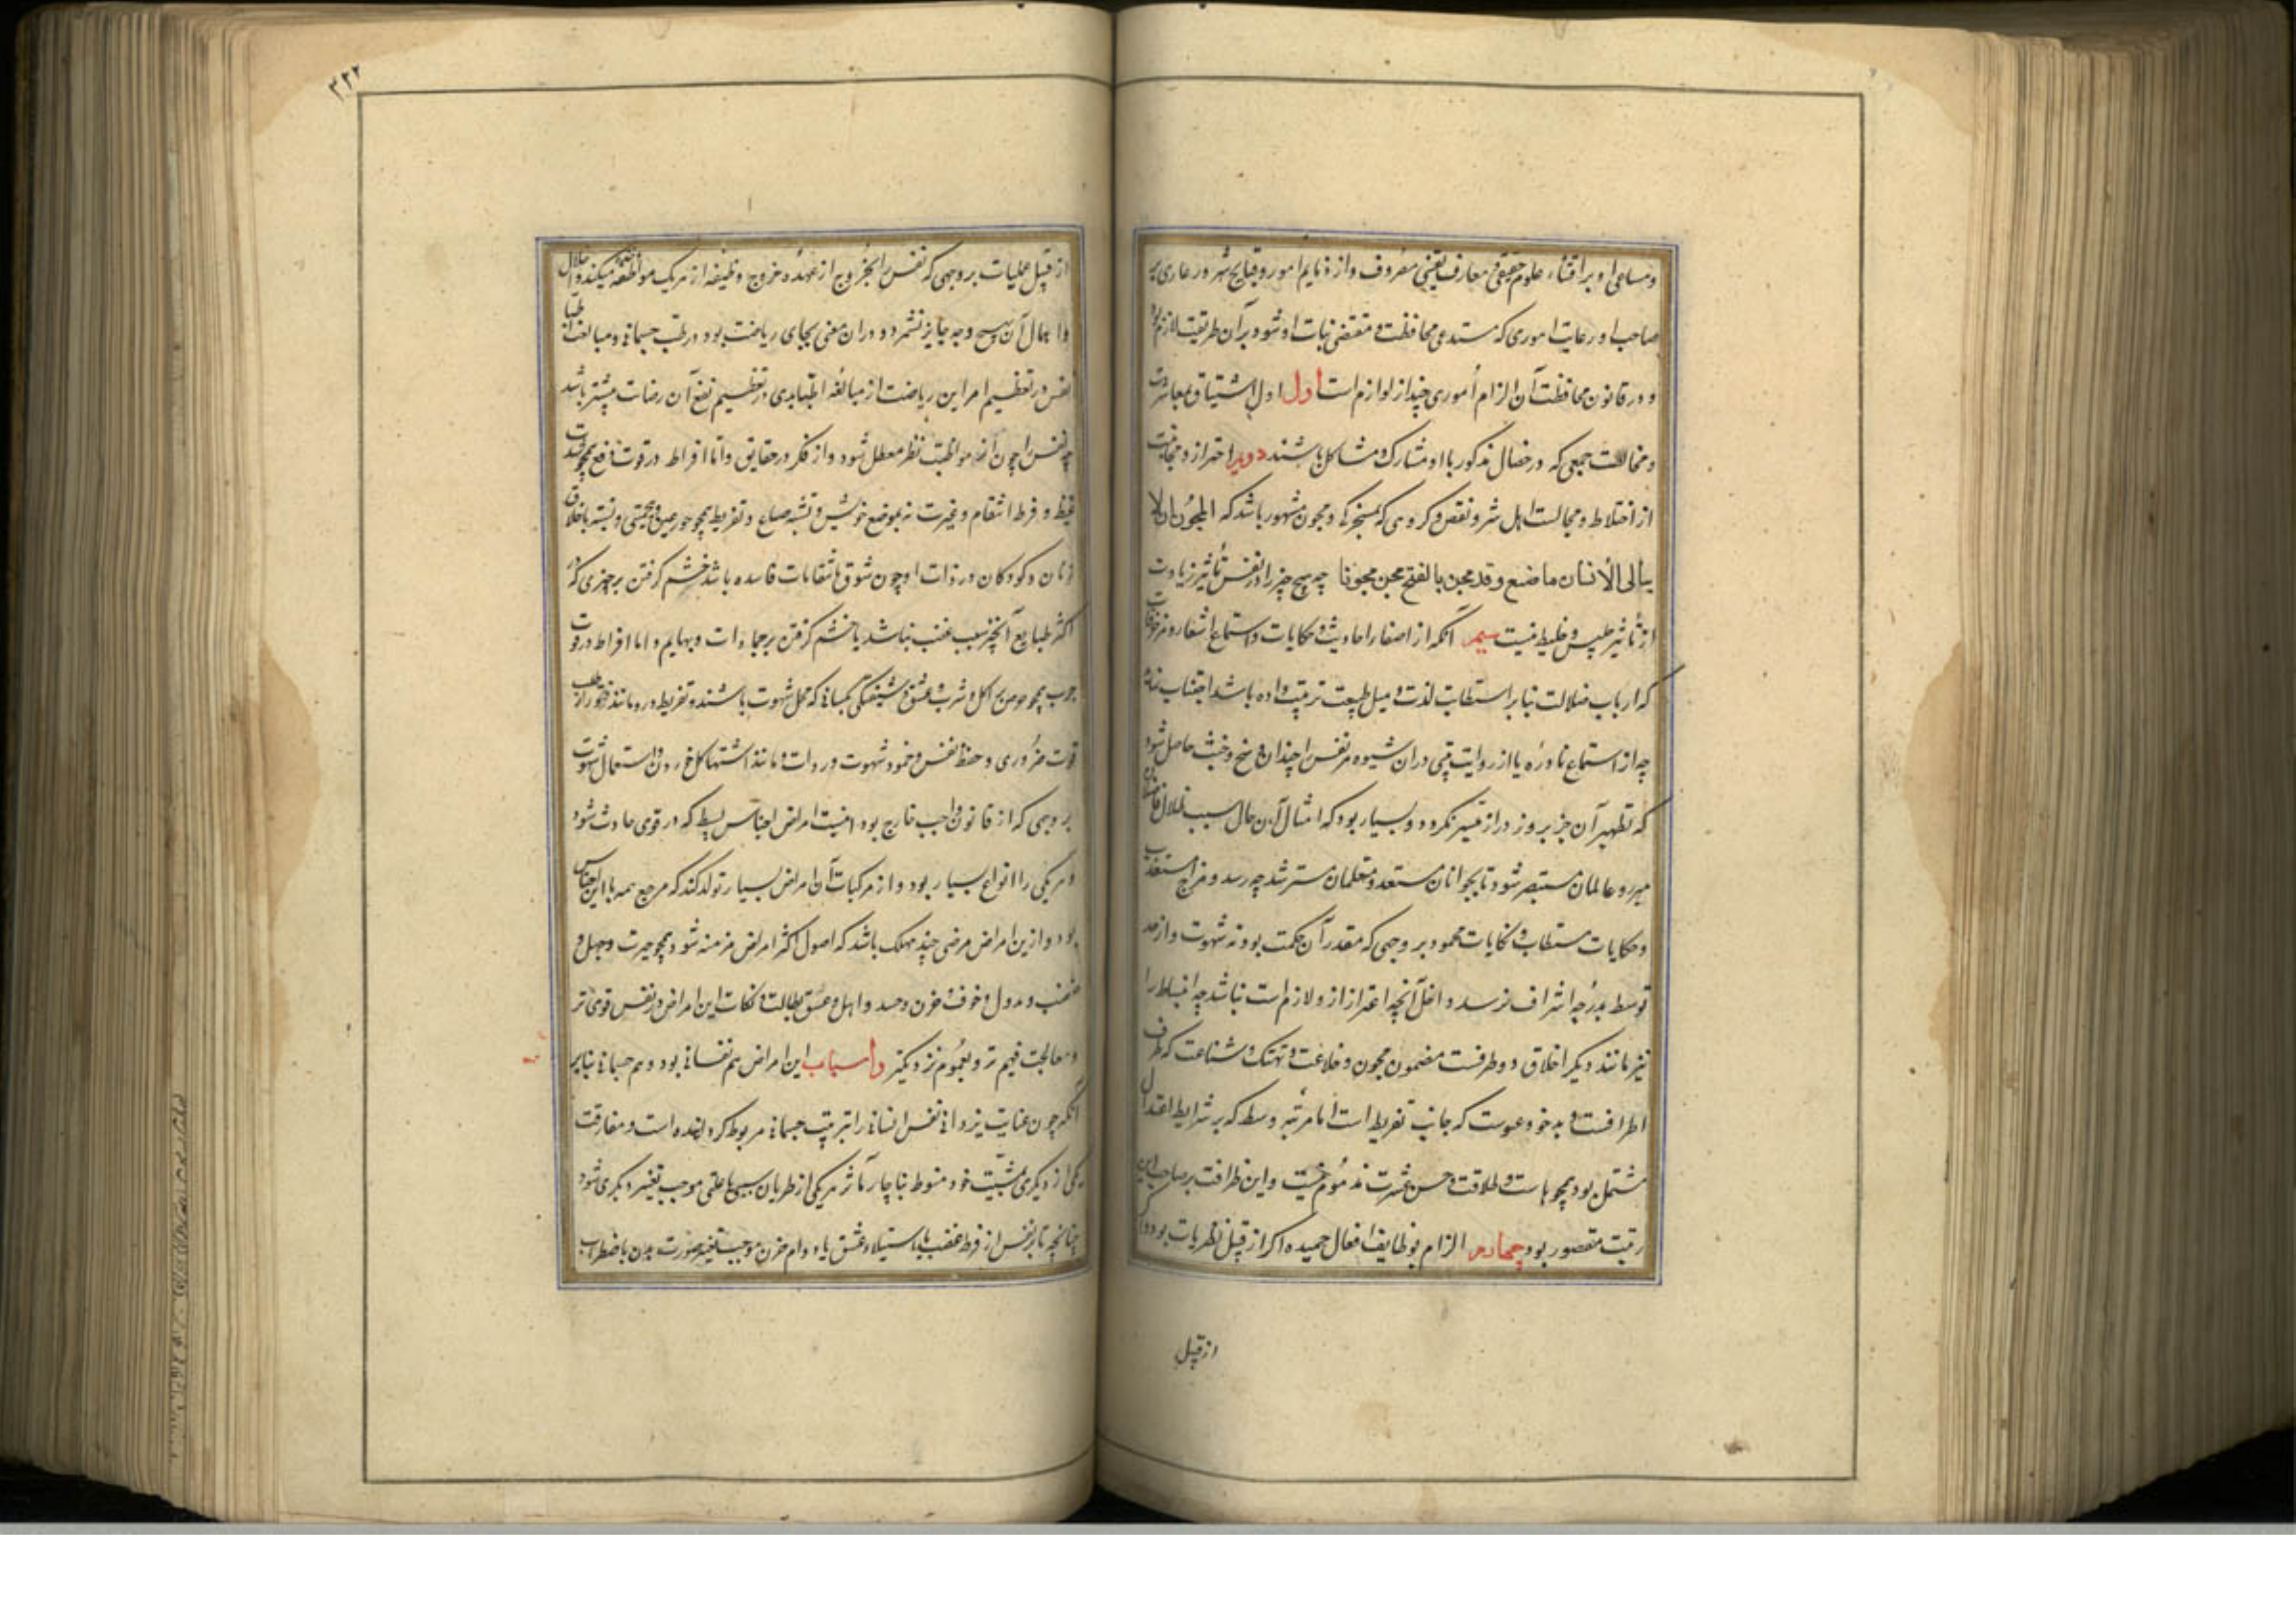 ومساعی او بر اقتناء علوم حقیقی و معارف یقینی مصروف و از ذمایم امور و قبایح شرور عاری بر
صاحب او رعایت اموری که مستدعی محافظت و مقتضی ثبات او شود بر آن طریقت لازم بود
و در قانون محافظت آن الزام اموری چند از لوازم است اول اول اشتیاق بمعاشرت
و مخالطت جمعی که در خصال مذکور با او مشارک و مشاکل باشند دویم احتراز و مجانبت
از اختلاط و مجالست اهل شر و نقص و گروهی که بمسخرگی و مجون مشهور باشد که المجون ان لا
یبالی الانسان ما صنع وقد مجن بالفتح یمجن مجونا چه هیچ چیز را در نفس تأثیر زیادت
از تأثیر جلیس و خلیط نیست سیم آنکه از اصغاء احادیث و حکایات و استماع اشعار و مزخرفات
که ارباب ضلالت بنابر استطابت لذت و میل طبیعت ترتیب داده باشد اجتناب نماید
چه از استماع نادره یا از روایت بیتی در آن شیوه مر نفس را چندان وسخ و خبث حاصل شود
که تطهیر آن جز بروز دراز میسر نگردد و بسیار بود که امثال آن حال سبب ضلال فاضلان
مبرز و عالمان مستبصر شود تا بجوانان مستعد و متعلمان مسترشد چه رسد و مزاح مستعذب
و حکایات مستطاب و نکایات محمود بر وجهی که مقدر آن حکمت بود نه شهوت و از حد
توسط بدرجه اشراف نرسد داخل آنچه احتراز از و لازم است نباشد چه انبساط را
نیز مانند دیگر اخلاق دو طرفست مضمون مجون و خلاعت و تهتک و شناعت که طرف
اطرافست و بدخو و عبوست که جانب تفریط است اما مرتبه وسط که بر شرایط اعتدال
مشتمل بود همچو بشاشت و طلاقت و حسن عشرت مذموم نیست و این ظرافت بر صاحب این
رتبت مقصور بود چهارم الزام بوظایف افعال حمیده اگر از قبیل نظریات بود و اگر
از قبیل
۳۲۲
از قبیل عملیات بر وجهی که نفس را بخروج از عهده خروج وظیفه از هر یک مواظفه میکند و اخلال
و اهمال آن بهیچ وجه جایز نشمرد و در آن معنی بجای ریاضت بود در طب جسمانی و مبالغت اطبا
نفس در تعظیم امر این ریاضت از مبالغه اطباء بدن در تعظیم نفع آن ریاضت بیشتر باشد
چه نفس را چون از مواظبت نظر معطل شود و از فکر در حقایق و اما افراط در قوت دفع همچو شدت
غیظ و فرط انتقام و غیرت نه بموضع خویش و تشبه بسباع و تفریط همچو جور و بی‌حمیتی و تشبه باخلاق
زنان و کودکان در ذات او چون شوق باشقابات فاسده باشد خشم گرفتن بر چیزی که نزد
اکثر طبایع آنچیز سبب غضب نباشد یا خشم گرفتن بر جمادات و بهایم و اما افراط در قوت
جذب همچو حرص بر اکل و شرب و عشق و شیفتگی بکسانی که محل شهوت باشند و تفریط در و مانند فتور از طلب
قوت ضروری و حفظ نفس و خمود شهوت و ردات مانند اشتها گل خوردن و استعمال شهوت
بر وجهی که از قانون واجب خارج بود اینست امراض اجناس بسیط که در قوی حادث شود
و هر یکی را انواع بسیار بود و از مرکبات آن امراض بسیار تولد کند که مرجع همه با این اجناس
بود و از این امراض مرضی چند مهلک باشد که اصول اکثر امراض مزمنه شود همچو حیرت و جهل و
غضب و بددلی و خوف و حزن و حسد و امل و عشق و بطالت و نکات این امراض در نفس قوی‌تر
و معالجت فهیم‌تر و بعموم نزدیکتر و اسباب این امراض هم نفسانی بود و هم جسمانی بنابر
آنکه چون عنایت یزدانی نفس انسانی را بترتیب جسمانی مربوط گردانیده است و مفارقت
یکی از دیگری بمشیت خود منوط بناچار تأثر هر یکی از طریان سببی یا علتی موجب تغیر دیگری شود
چنانچه تأثر نفس از فرط غضب یا استیلاء عشق یا دوام حزن موجب تغیر صورت بدن باضطراب